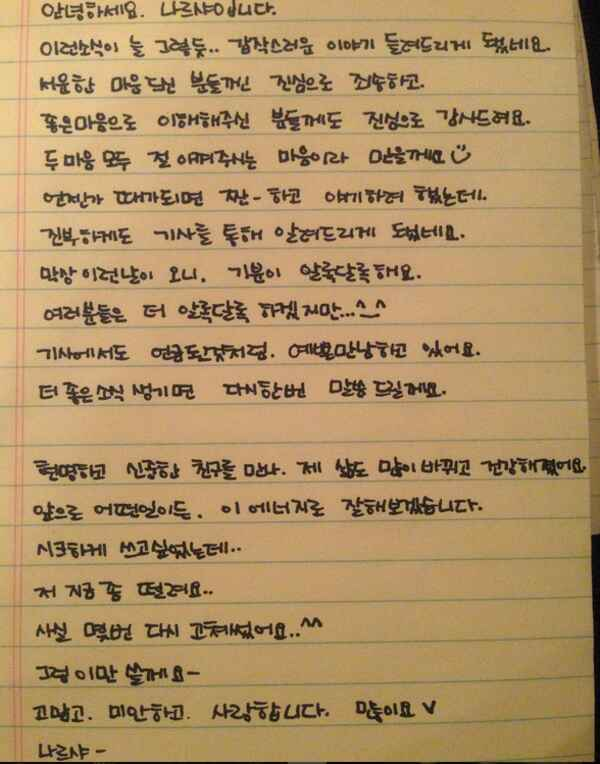 안녕하세요. 나르샤입니다.
이런소식이 늘 그렇듯.. 갑작스러운 이야기 들려드리게 됐네요.
서운한 마음드신 분들껜 진심으로 죄송하고.
좋은마음으로 이해해주신 분들께도 진심으로 감사드려요.
두마음 모두 절 아껴주시는 마음이라 믿을께요
언젠가 때가되면 짠-하고 얘기하려 했는데.
진부하게도 기사를 통해 알려드리게 됐네요.
막상 이런날이 오니. 기분이 알록달록해요.
여러분들은 더 알록달록 하겠지만...^_^
기사에서도 언급된것처럼. 예쁜만남하고 있어요.
더 좋은소식 생기면 다시한번 말씀 드릴께요.
현명하고 신중한 친구를 만나. 제 삶도 많이 바뀌고 건강해졌어요
앞으로 어떤일이든. 이 에너지로 잘해보겠습니다.
시크하게 쓰고싶었는데..
저 지금 좀 떨려요..
사실 몇번 다시 고쳐썼어요..^^
그럼 이만 쓸게요-
고맙고. 미안하고. 사랑합니다. 많이요 v
나르샤-